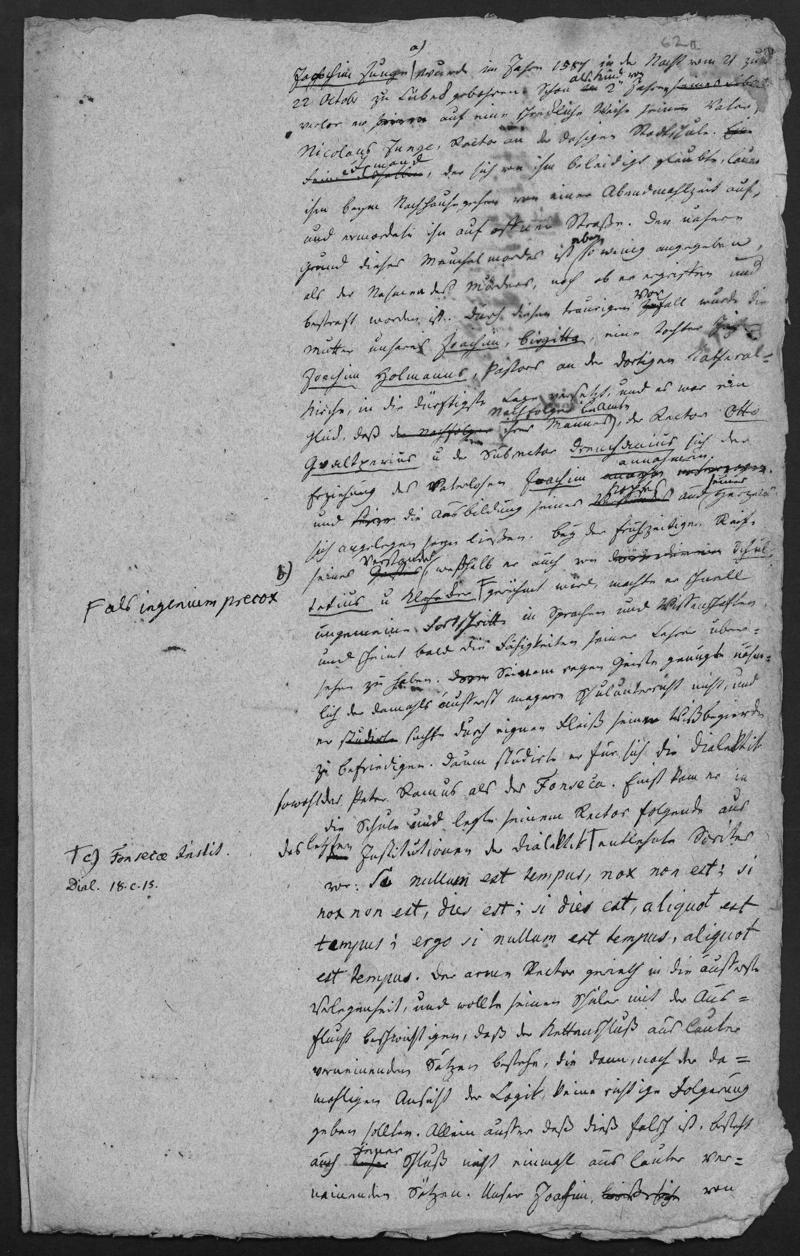 62a
a)
Joachim Junge wurde im Jahre 1587 in der Nacht vom 21 zum
22 Octob zu Lübek gebohren. Schon als Kind von 2 Jahren
verlor er auf eine schreckliche Weise seinen Vater,
Nicolaus Junge, Rector an der dasigen Stadtschule.
Jemand, der sich von ihm beleidigt glaubte, lauerte
ihm beym Nachhausegehen von einer Abendmahlzeit auf,
und ermordete ihn auf offner Straße. Der nähere
Grund dieses Meuchelmordes ist eben so wenig angegeben,
als der Nahme des Mörders, noch ob er ergriffen und
bestraft worden ist. Durch diesen traurigen Vorfall wurde die
Mutter unseres Joachim, Birgitta, eine Tochter
Joachim Holmanns, Pastors an der dortigen Cathedral-
kirche, in die dürftigste Lage versetzt, und es war ein
Glück, daß der Nachfolger ihres Mannes, der Rector Otto
Gvaltperius u der Subrector Drenckhanius sich der
Erziehung des Vaterlosen Joachim annahmen
und die Ausbildung seines Kopfes und seines Herzens
sich angelegen seyn ließen. Bey der frühzeitigen Reife
b)
seines Verstandes, weßhalb er auch von Schul-
F als ingenium precox
tetius u Klefeker F gerühmt wurde, machte er schnell
ungemeine Fortschritte in Sprachen und Wissenschaften
und scheint bald die Fähigkeiten seiner Lehrer über-
sehen zu haben. Seinem regen Geiste genügte nähm-
lich der damahls äusserst magere Schulunterricht nicht, und
er suchte durch eignen Fleiß seine Wißbegierde
zu befriedigen. Darum studirte er für sich die Dialektik
sowohl des Peter Ramus als des Fonseca. Einst kam er in
die Schule und legte seinem Rector folgende aus
† c) Fonsecæ Instit.
des letztern Institutionen der Dialektik † entlehnte Sorites
Dial. 18. c. 15.
vor: Si nullum est tempus, nox non est; si
nox non est, dies est; si dies est, aliquot est
tempus; ergo si nullum est tempus, aliquot
est tempus. Der arme Rector gerieth in die äusserste
Verlegenheit, und wollte seinen Schüler mit der Aus-
flucht beschwichtigen, daß der Kettenschluß aus lauter
verneinenden Sätzen bestehe, die dann, nach der da-
mahligen Ansicht der Logik, keine richtige Folgerung
geben sollten. Allein ausser daß dieß falsch ist, besteht
auch jener Schluß nicht einmahl aus lauter ver-
neinenden Sätzen. Unser Joachim, von